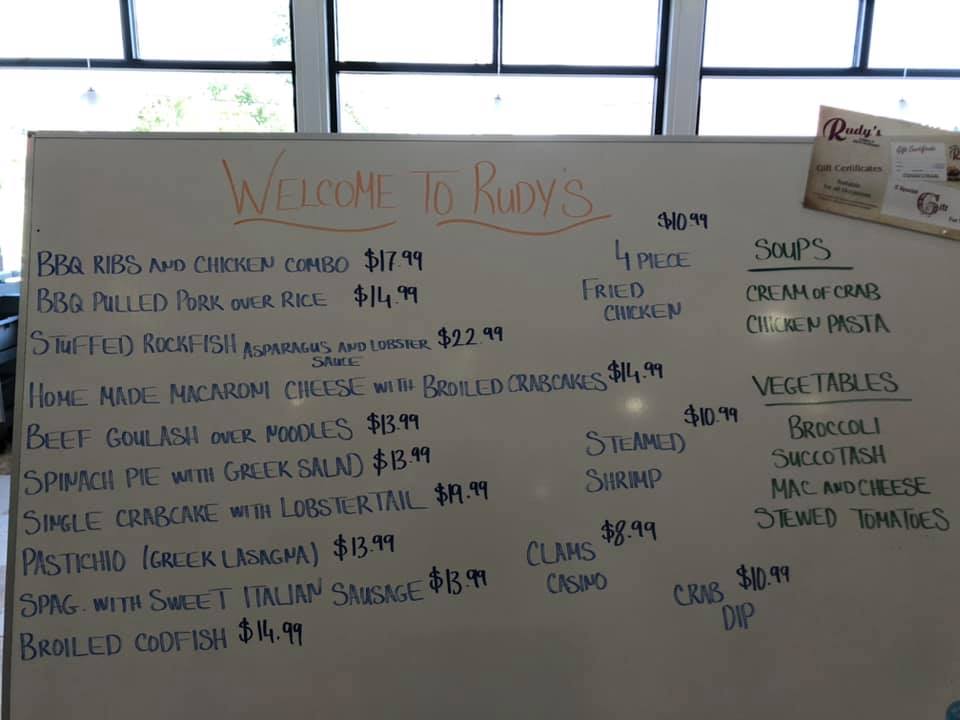 WELCOME TO RUDY'S
BBQ RIBS AND CHICKEN COMBO $17.99
BBQ PULLED PORK OVER RICE $14.99
STUFFED ROCKFISH ASPARAGUS AND LOBSTER SAUCE $22.99
HOME MADE MACARONI CHEESE WITH BROILED CRABCAKES $14.99
BEEF GOULASH OVER NOODLES $13.99
SPINACH PIE WITH GREEK SALAD $13.99
SINGLE CRABCAKE WITH LOBSTERTAIL $19.99
PASTICHIO (GREEK LASAGNA) $13.99
SPAG. WITH SWEET ITALIAN SAUSAGE $13.99
BROILED CODFISH $14.99
$10.99
4 PIECE
FRIED
CHICKEN
$10.99
STEAMED
SHRIMP
CLAMS $8.99
CASINO
CRAB $10.99
DIP
SOUPS
CREAM OF CRAB
CHICKEN PASTA
VEGETABLES
BROCCOLI
SUCCOTASH
MAC AND CHEESE
STEWED TOMATOES
Rudy's
Gift Certificates
Available
For all Occasions
Gift Certificate
A Special
Gift